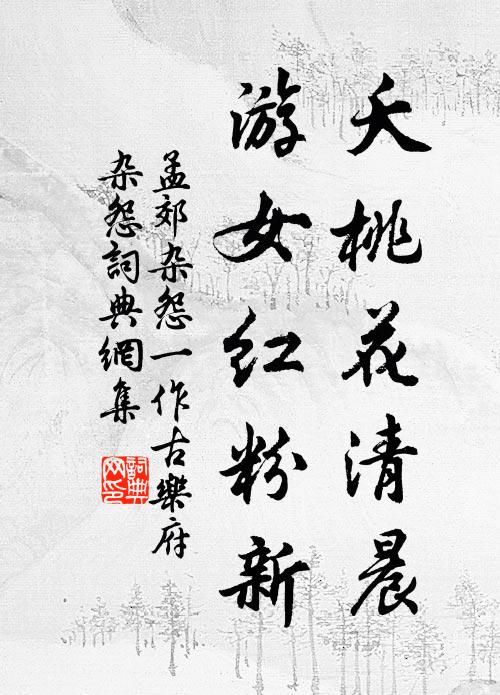 夭桃花清晨
游女红粉新
孟郊杂怨一作古樂府
杂怨詞典網集
詞典网印